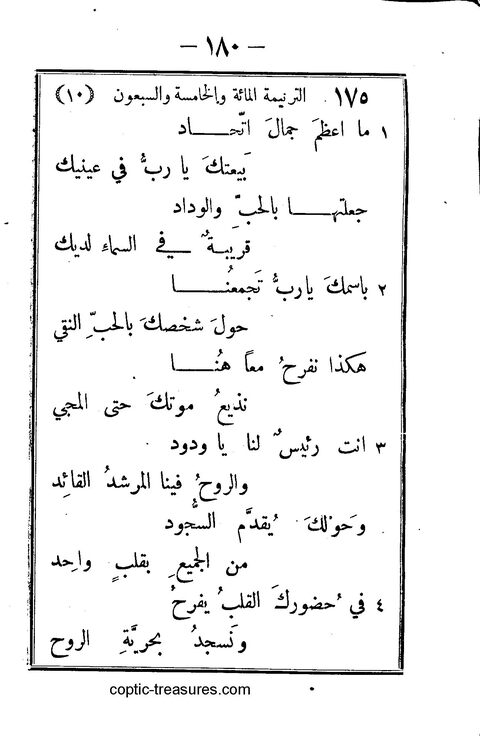 — ١٨٠ —
١٧٥ الترنيمة المائة والخامسة والسبعون (١٠)
١ ما اعظمَ جمالَ اتّحاد
بيعتكَ يا ربُّ في عينيك
جعلتها بالحبِّ والوداد
قريبةٌ في السماء لديك
٢ باسمكَ ياربُّ تَجمعنُا
حولَ شخصكَ بالحبِّ النقي
هكذا نفرحُ معاً هُنا
نذيعُ موتكَ حتى المجي
٣ انت رئيسٌ لنا يا ودود
والروحُ فينا المرشدُ القائِد
وَحوْلكَ يُقدَّم السُّجود
من الجميعِ بقلبٍ واحِد
٤ في حُضوركَ القلبُ يُفرحُ
ونَسجدُ بحريَّةِ الروح
coptic-treasures.com